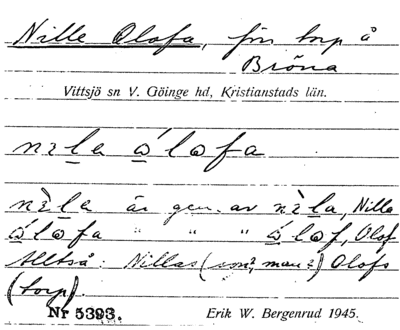 Nille Olofa, för torp å
Bröna
Vittsjö sn V. Göinge hd, Kristianstads län.
nɪla ólofa
nɪ̀la är gen. av nɪ̀la, Nilla
ólofa " " " ólof, Olof
Alltså: Nillas (son?, man?) Olofs
(torp).
Nr 5393. Erik W. Bergenrud 1945.